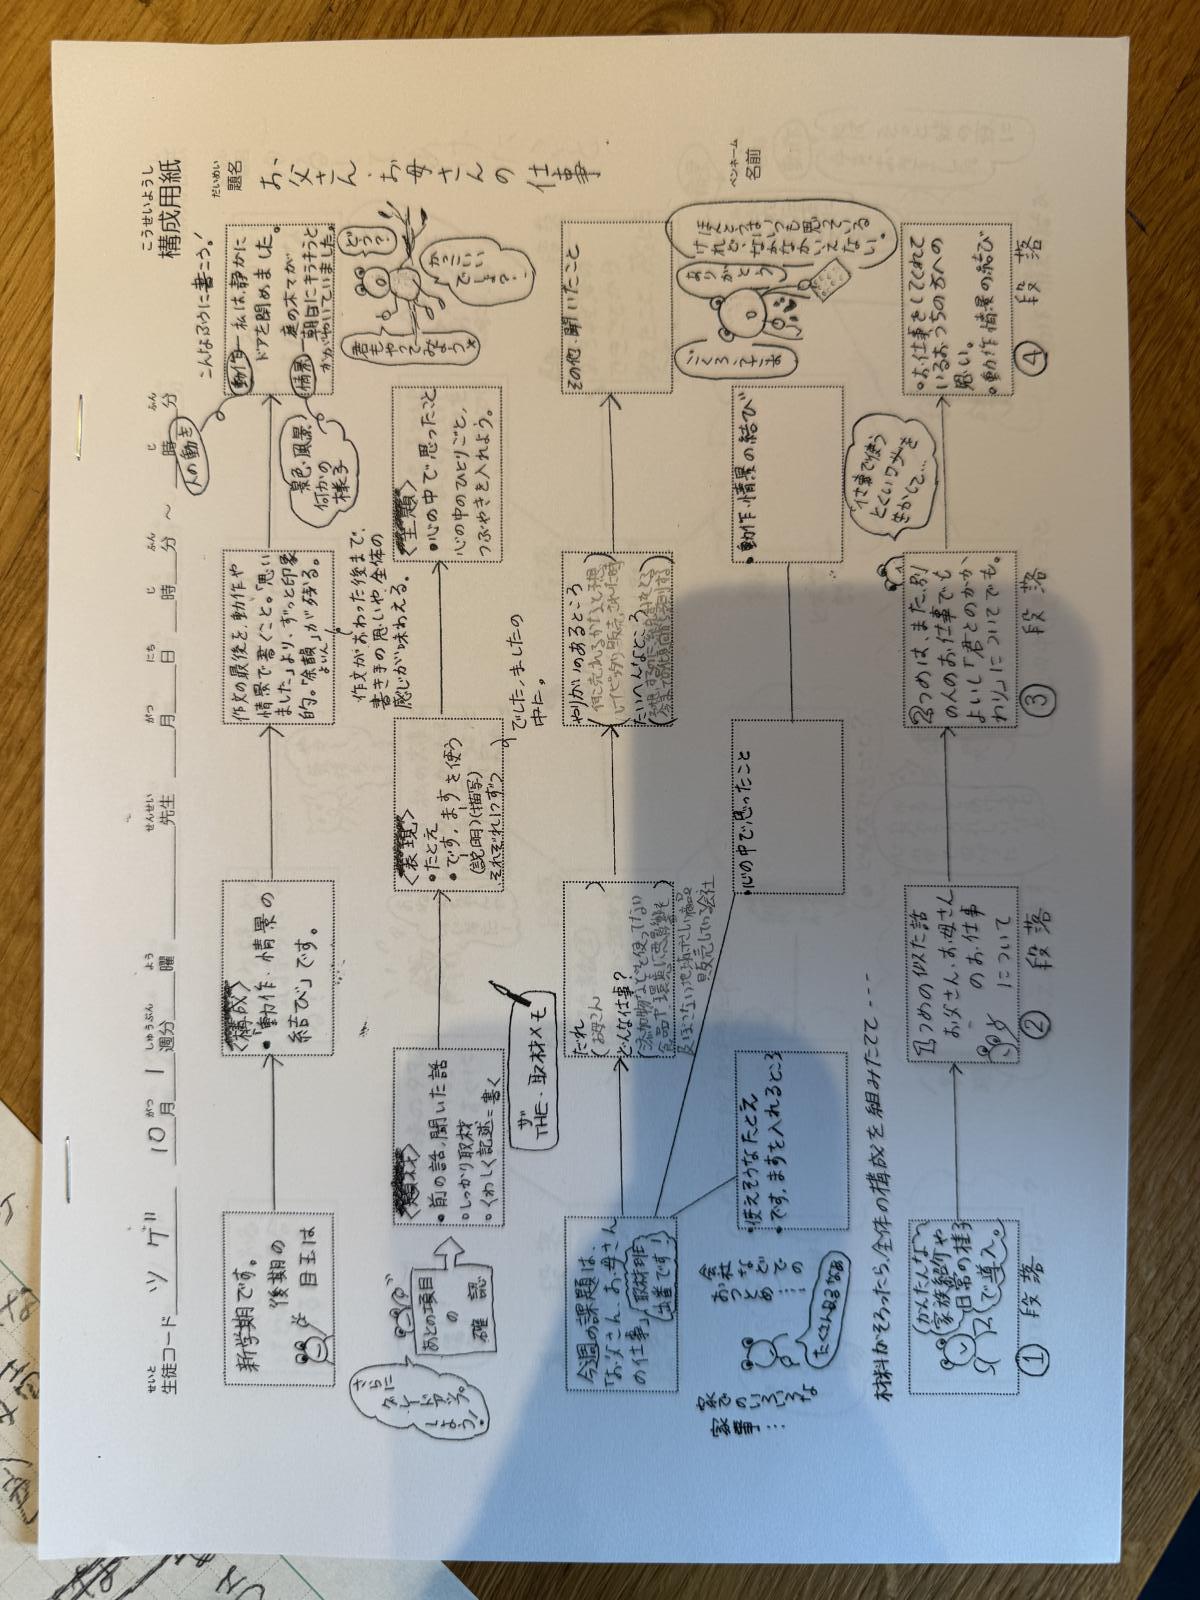 こうせいようし
構成用紙
せいと
生徒コード ツゲ 10月 1週分 曜 先生 月 日 時 分 〜 時 分
がつ しゅうぶん よう せんせい がつ にち じ ふん じ ふん
だいめい
題名
お父さん・お母さんの仕事
ペンネーム
名前
新学期です。
後期の
目玉は
〈構成〉
・「動作・情景の
結び」です。
作文の最後を、動作や
情景で書くこと。「思い
ました」より、ずっと印象
的。「余韻」が残る。
よいん
作文がおわった後まで、
書き手の思いや全体の
感じが味わえる。
こんなふうに書こう!
動作 私は、静かに
ドアを閉めました。
情景 庭の木々が
朝日にキラキラと
かがやいていました。
人の動き
景色、風景
何かの
様子
さらに
しよう!
あとの項目
の
確認
〈題材〉
・前の話、聞いた話
・しっかり取材
・くわしく記述=書く
〈表現〉
・たとえ
・です、ますを使う
(説明)(描写)
それぞれ1つずつ
でした、ましたの
中に。
〈主題〉
・心の中で思ったこと
心の中のひとりごと、
つぶやきを入れよう。
君もやってみよう
どう?
かっこいい
でしょ?
今週の課題は、
「お父さん、お母さん
の仕事」 取材班
出番です!
ザ
THE・取材メモ
だれ
(お母さん )
どんな仕事?
(添加物などを使ってない
食品や環境に悪影響を
及ぼさない
販売している会社
やりがいのあるところ
たいへんなところ
その他・聞いたこと
ほんとうはいつも思っている
けれど、なかなかいえない。
ありがとう
ごくろうさま
家でのいろいろな
家事…
会社
おつとめ
などでの
…
たくさんあるなあ
・使えそうなたとえ
・です、ますを入れるところ
・心の中で思ったこと
・動作・情景の結び
材料がそろったら、全体の構成を組みたてて・・・・
(かんたんな)
家族紹介や
日常の様子
で導入。
① 段落
1つめの似た話
お父さん、お母さん
のお仕事
について
② 段落
2つめは、また、別
の人のお仕事でも
よいし「君とのかか
わり」についてでも。
③ 段落
仕事で使う
とくいワザを
生かして…
・お仕事をしてくれて
いるおうちの方への
思い。
・動作・情景の結び
④ 段落